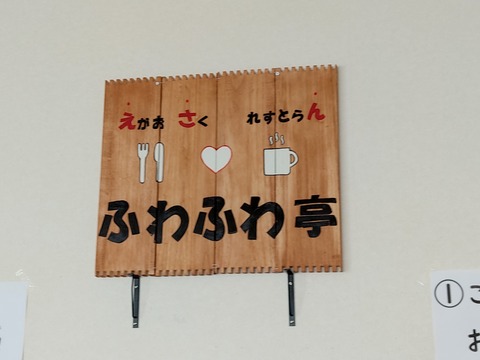 えがお さく れすとらん
ふわふわ亭
①こ
お